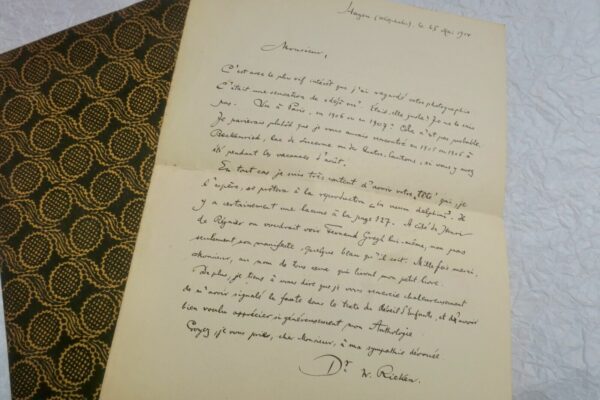 Hagen (Westphalie) le 25 Mai 19
Monsieur,
C'est avec le plus vif intérêt que j'ai regardé votre photographie
C'était une sensation de « déjà vu ». Était-elle juste? Je ne le sais
pas. Vu à Paris, en 1906 ou en 1907? Cela n'est pas probable.
Je parierais plutôt que je vous aurais rencontré en 1905 ou 1906 à
Beckenried, lac de Lucerne ou des Quatre-Cantons, si vous y avez
été pendant les vacances d'août.
En tout cas je suis très content d'avoir votre „tête" qui, je
l'espère, se prêtera à la reproduction « in usum delphini ». Il
y a certainement une lacune à la page 127. À côté de Henri
de Régnier on voudrait voir Fernand Gregh lui-même, non pas
seulement son manifeste, quelque beau qu'il soit. Mille fois merci,
Monsieur, au nom de tous ceux qui liront mon petit livre.
De plus, je tiens à vous dire que je vous remercie chaleureusement
de m'avoir signalé la faute dans le texte du Récit d'Enfants, et d'avoir
bien voulu apprécier si généreusement mon Anthologie
Croyez, je vous prie, cher Monsieur, à ma sympathie dévouée
Dr W. Ricken.